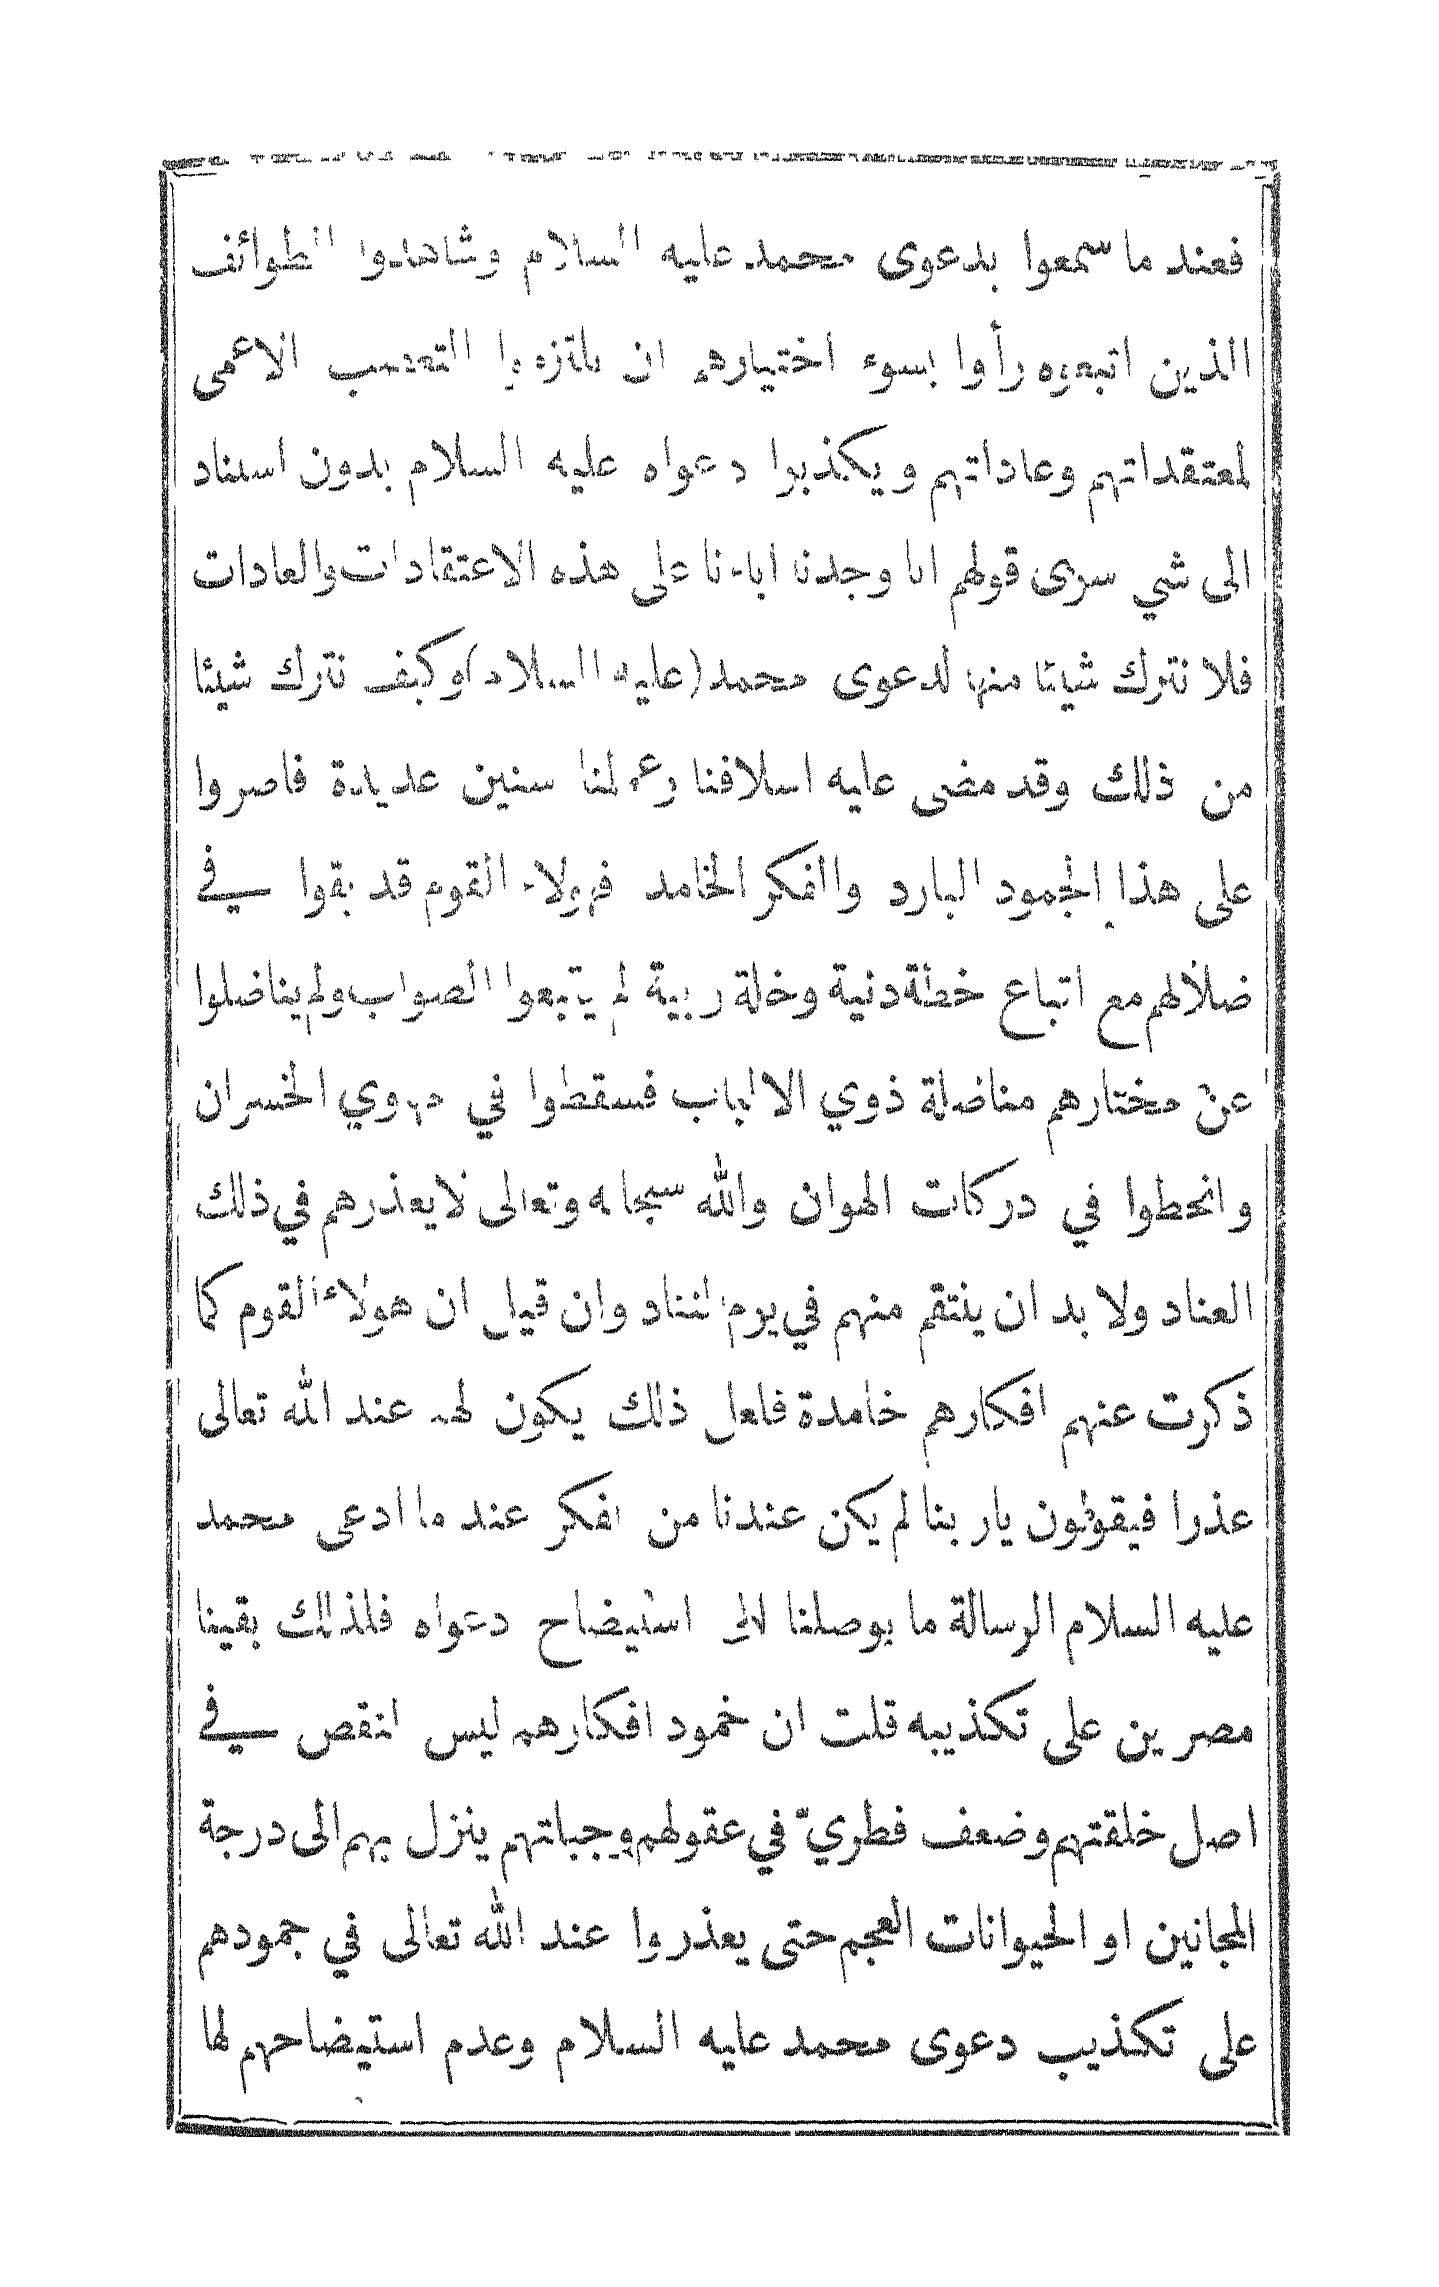 فعند ما سمعوا بدعوى محمد عليه السلام وشاهدوا الطوائف
الذين اتبعوه رأوا بسوء اختيارهم ان يلتزموا التعصب الاعمى
لمعتقداتهم وعاداتهم ويكذبوا دعواه عليه السلام بدون استناد
الى شي سوى قولهم انا وجدنا اباءنا على هذه الاعتقادات والعادات
فلا نترك شيئا منها لدعوى محمد (عليه السلام) وكيف نترك شيئا
من ذلك وقد مضى عليه اسلافنا وعملنا سنين عديدة فاصروا
على هذا الجمود البارد والفكر الخامد فهولاء القوم قد بقوا في
ضلالهم مع اتباع خطة دنية وخلة ربية لم يتبعوا الصواب ولم يناضلوا
عن مختارهم مناضلة ذوي الالباب فسقطوا في مهوي الخسران
وانحطوا في دركات الهوان والله سبحانه وتعالى لا يعذرهم في ذلك
العناد ولا بد ان ينتقم منهم في يوم التناد وان قيل ان هولاء القوم كما
ذكرت عنهم افكارهم خامدة فلعل ذلك يكون لهم عند الله تعالى
عذرا فيقولون يا ربنا لم يكن عندنا من الفكر عند ما ادعى محمد
عليه السلام الرسالة ما يوصلنا الى استيضاح دعواه فلذلك بقينا
مصرين على تكذيبه قلت ان خمود افكارهم ليس لنقص في
اصل خلقتهم وضعف فطريّ في عقولهم وجبلتهم ينزل بهم الى درجة
المجانين او الحيوانات العجم حتى يعذروا عند الله تعالى في جمودهم
على تكذيب دعوى محمد عليه السلام وعدم استيضاحهم لها